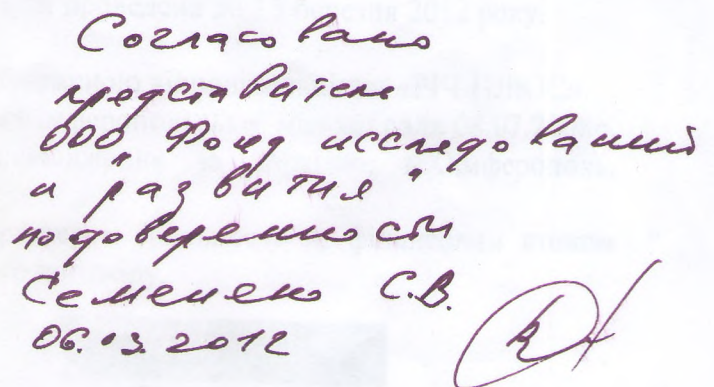 Согласовано
представитель
ООО "Фонд исследований
и развития"
по доверенности
Семенено С.В.
06.03.2012